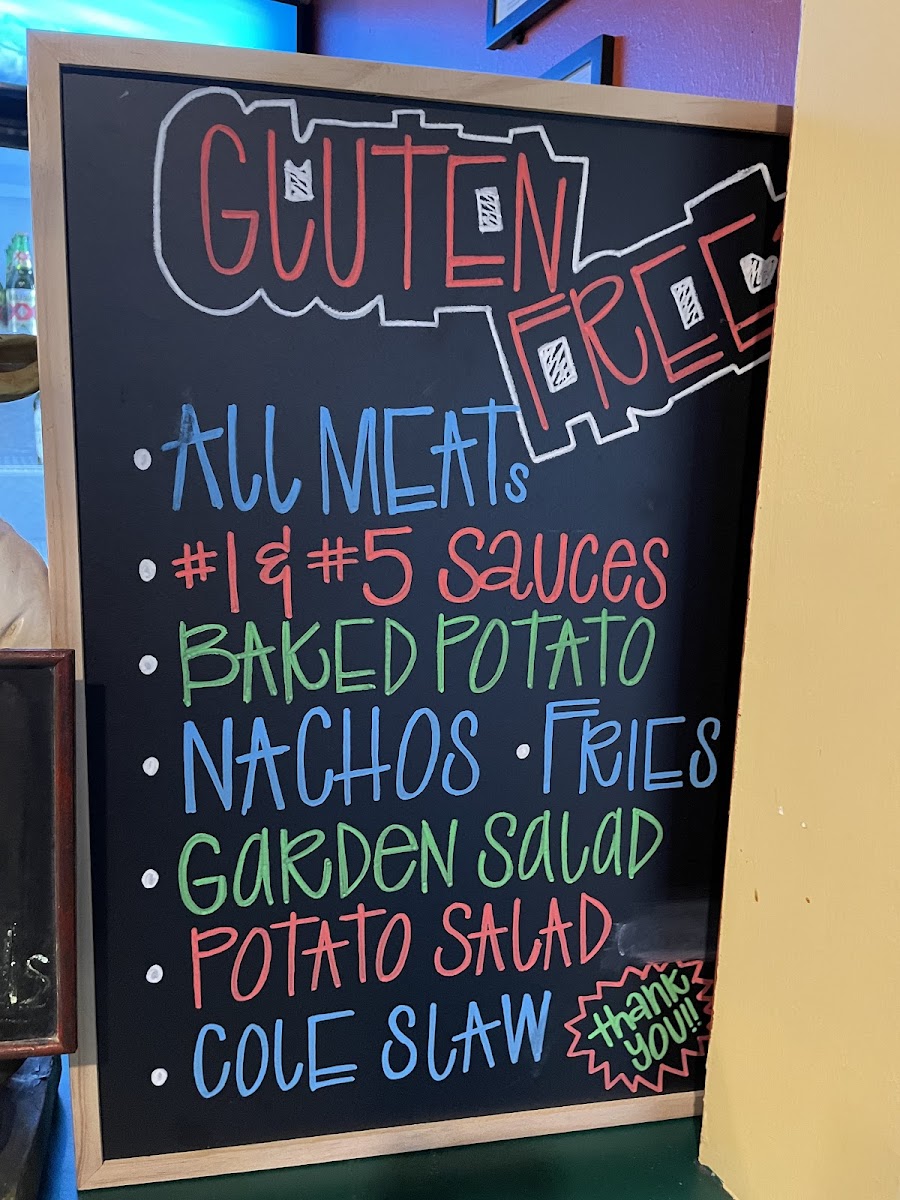 GLUTEN
FREE
• ALL MEATs
• #1 & #5 Sauces
• BAKED POTATO
• NACHOS • FRIES
• GARDEN SALAD
• POTATO SALAD
• COLE SLAW
thank
you!!